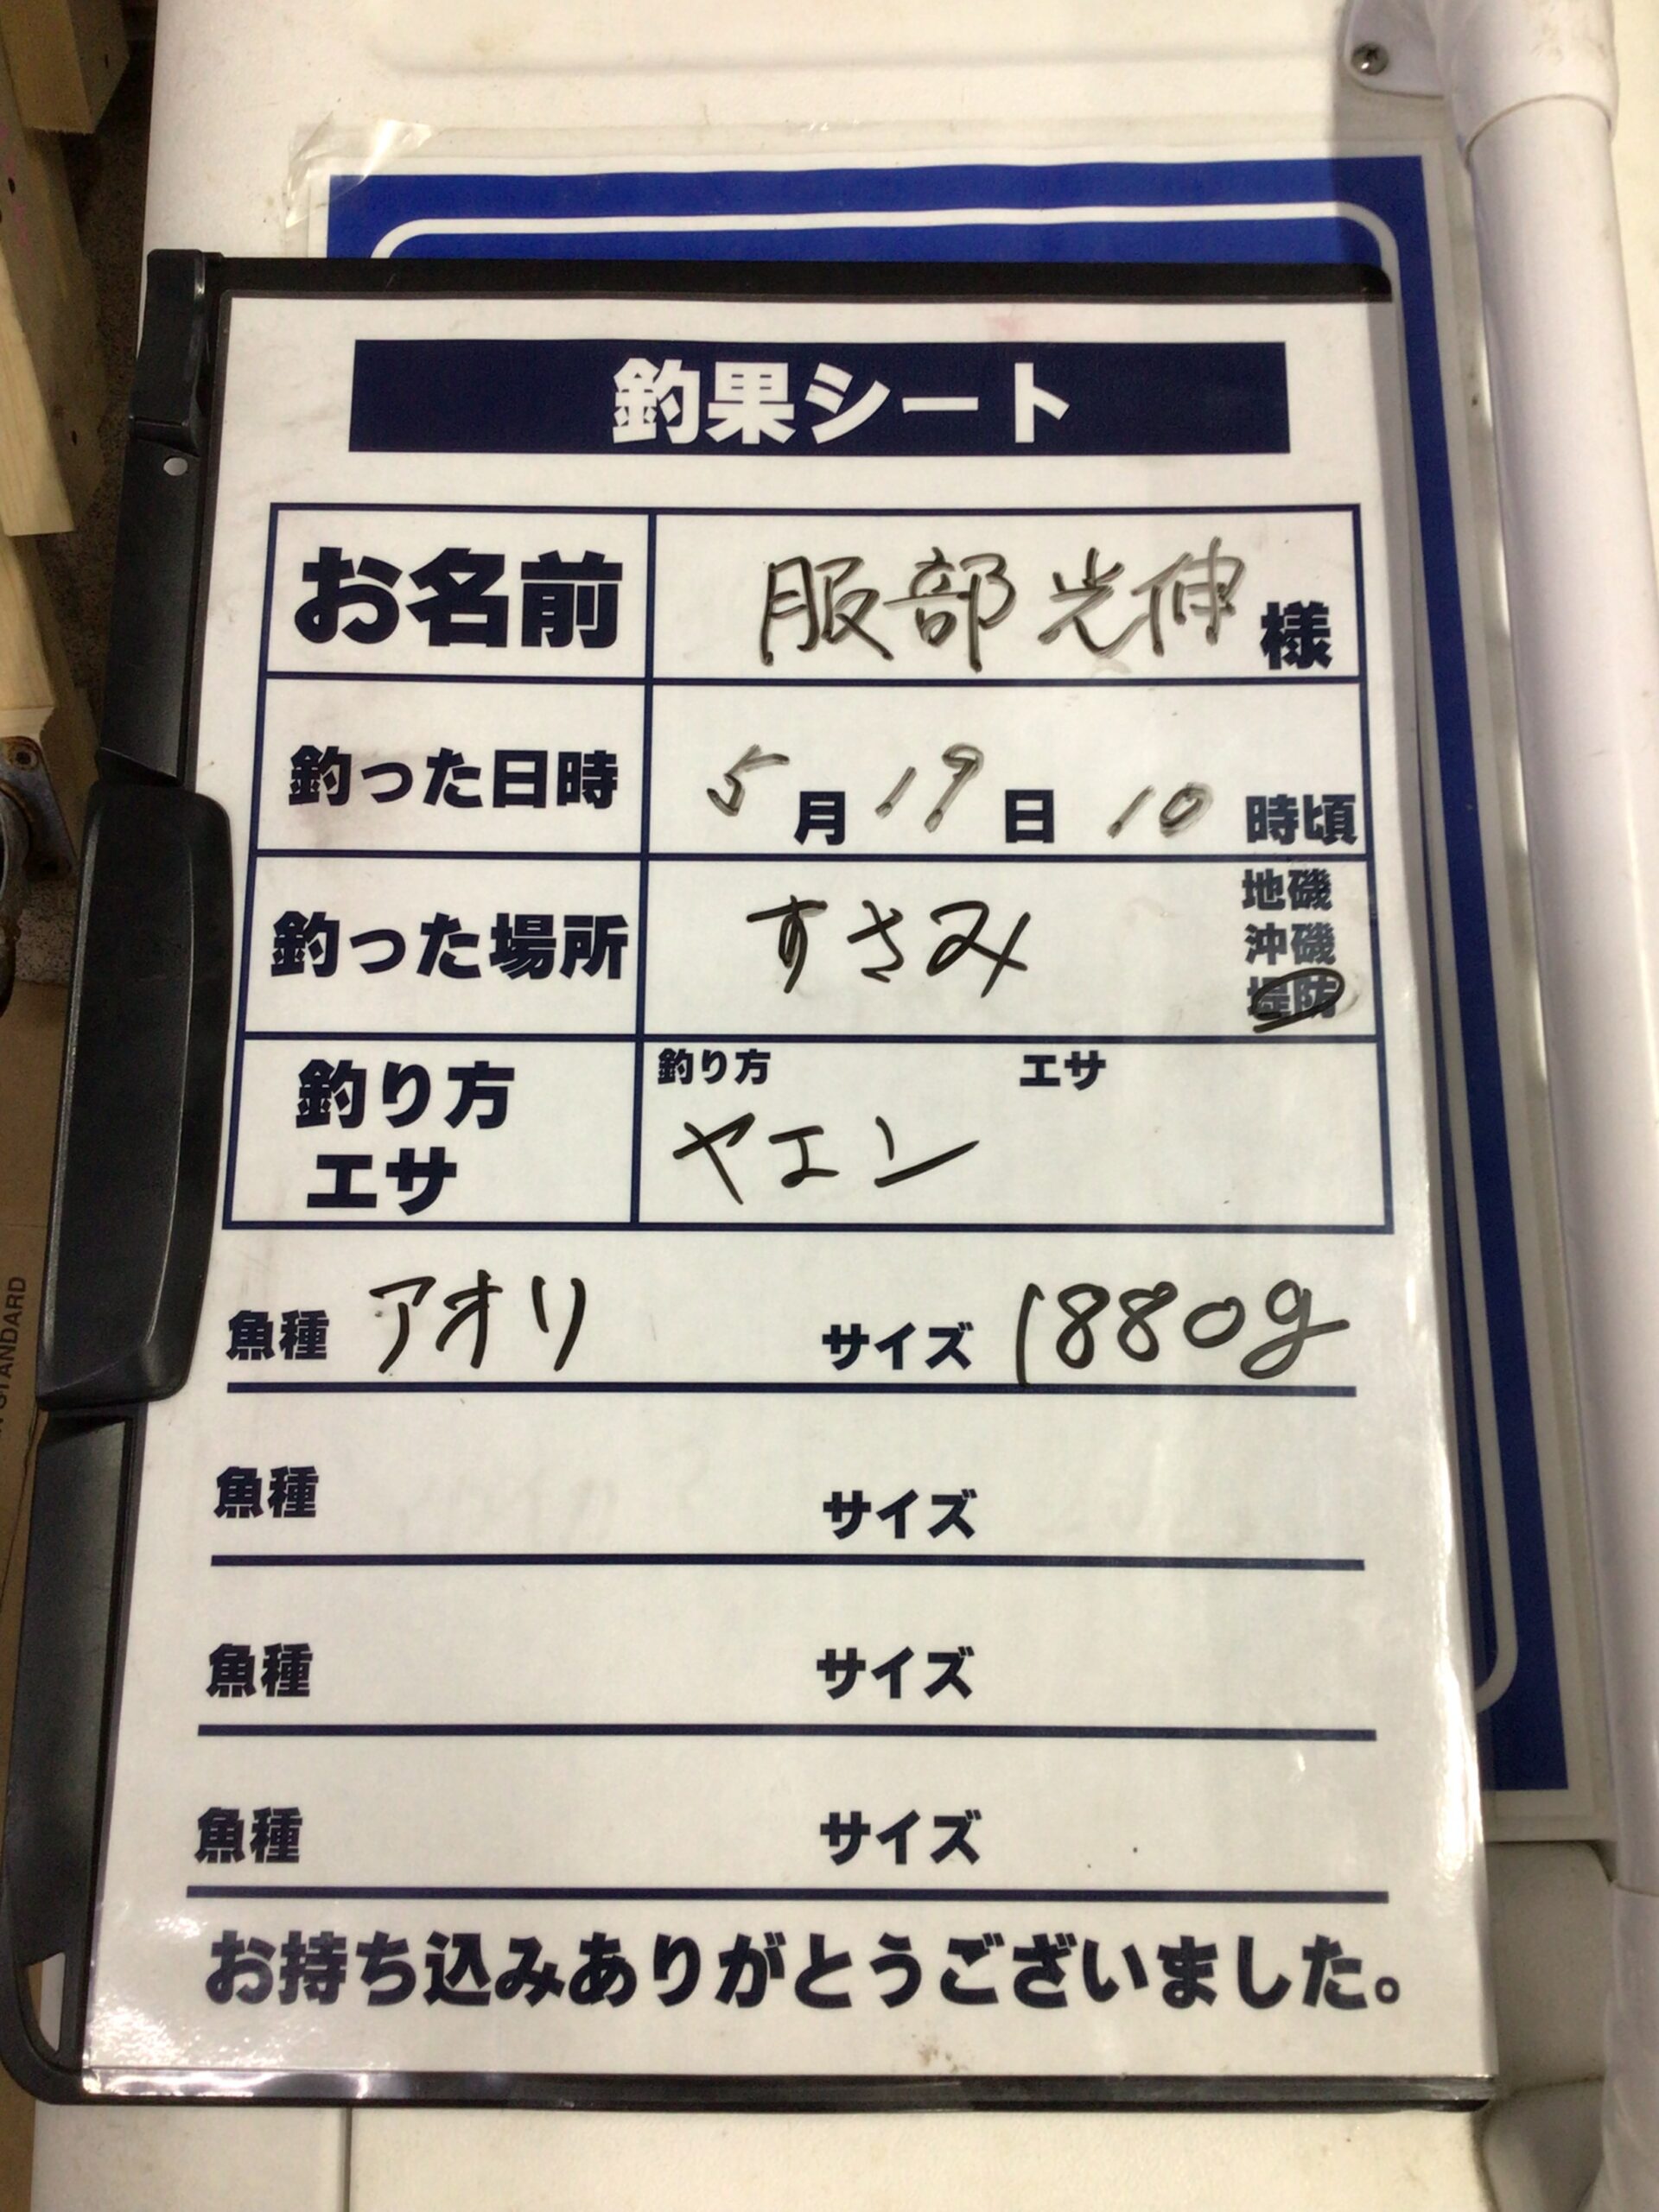 釣果シート
お名前 服部光伸様
釣った日時 5月19日10時頃
釣った場所 すさみ 地磯
沖磯
堤防
釣り方 エサ 釣り方 エサ
ヤエン
魚種 アオリ サイズ 1880g
魚種 サイズ
魚種 サイズ
魚種 サイズ
お持ち込みありがとうございました。
STANDARD